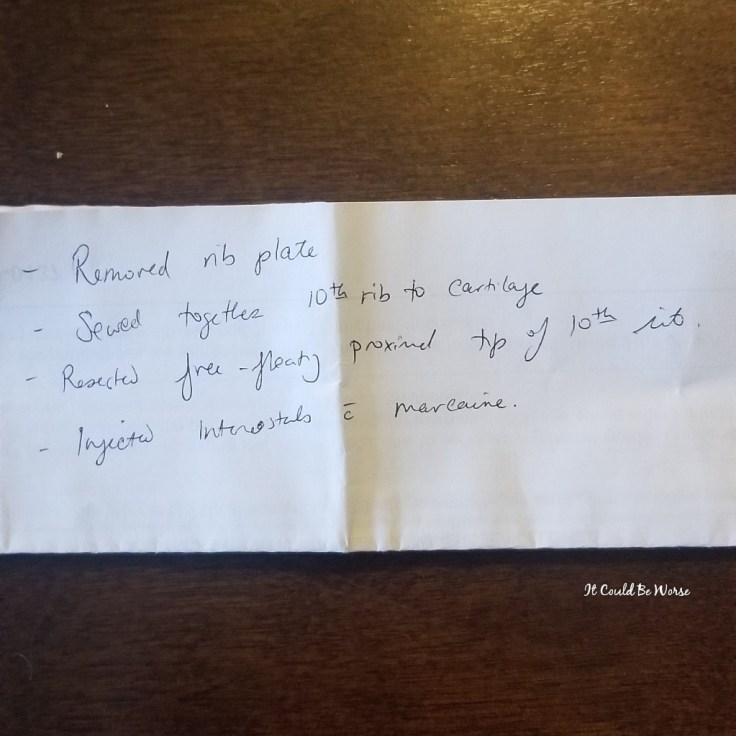 - Removed rib plate
- Sewed together 10th rib to cartilage
- Resected free-floating proximal tip of 10th rib.
- Injected Intercostals c̄ marcaine.
It Could Be Worse